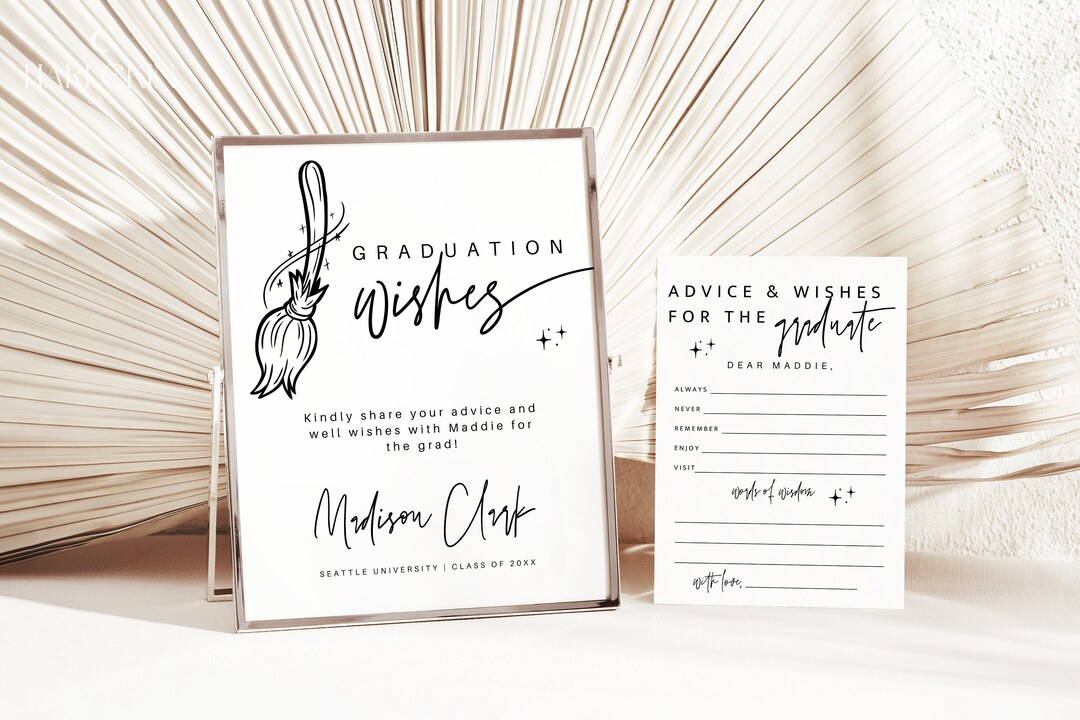 GRADUATION
wishes
Kindly share your advice and
well wishes with Maddie for
the grad!
Madison Clark
SEATTLE UNIVERSITY | CLASS OF 20XX
ADVICE & WISHES
FOR THE graduate
DEAR MADDIE,
ALWAYS
NEVER
REMEMBER
ENJOY
VISIT
words of wisdom
with love,